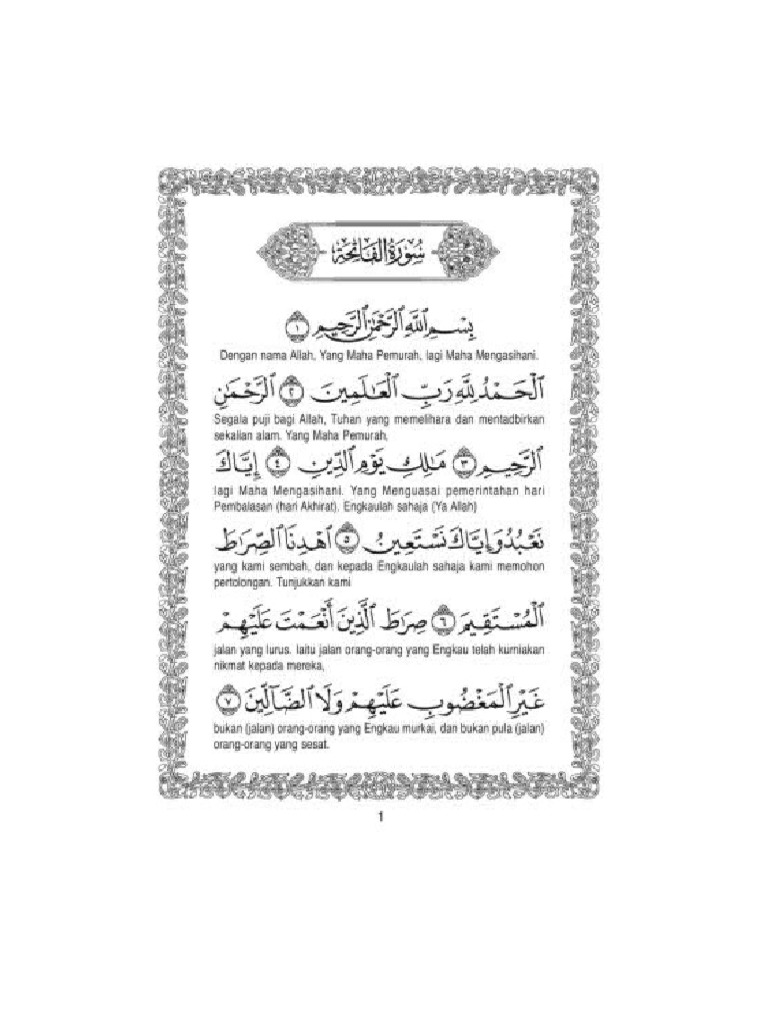 سُورَةُ الفَاتِحَة
بِسْمِ ٱللَّهِ ٱلرَّحْمَٰنِ ٱلرَّحِيمِ ١
Dengan nama Allah, Yang Maha Pemurah, lagi Maha Mengasihani.
ٱلْحَمْدُ لِلَّهِ رَبِّ ٱلْعَٰلَمِينَ ٢ ٱلرَّحْمَٰنِ
Segala puji bagi Allah, Tuhan yang memelihara dan mentadbirkan
sekalian alam. Yang Maha Pemurah,
ٱلرَّحِيمِ ٣ مَٰلِكِ يَوْمِ ٱلدِّينِ ٤ إِيَّاكَ
lagi Maha Mengasihani. Yang Menguasai pemerintahan hari
Pembalasan (hari Akhirat). Engkaulah sahaja (Ya Allah)
نَعْبُدُ وَإِيَّاكَ نَسْتَعِينُ ٥ ٱهْدِنَا ٱلصِّرَٰطَ
yang kami sembah, dan kepada Engkaulah sahaja kami memohon
pertolongan. Tunjukkan kami
ٱلْمُسْتَقِيمَ ٦ صِرَٰطَ ٱلَّذِينَ أَنْعَمْتَ عَلَيْهِمْ
jalan yang lurus. Iaitu jalan orang-orang yang Engkau telah kurniakan
nikmat kepada mereka,
غَيْرِ ٱلْمَغْضُوبِ عَلَيْهِمْ وَلَا ٱلضَّآلِّينَ ٧
bukan (jalan) orang-orang yang Engkau murkai, dan bukan pula (jalan)
orang-orang yang sesat.
1